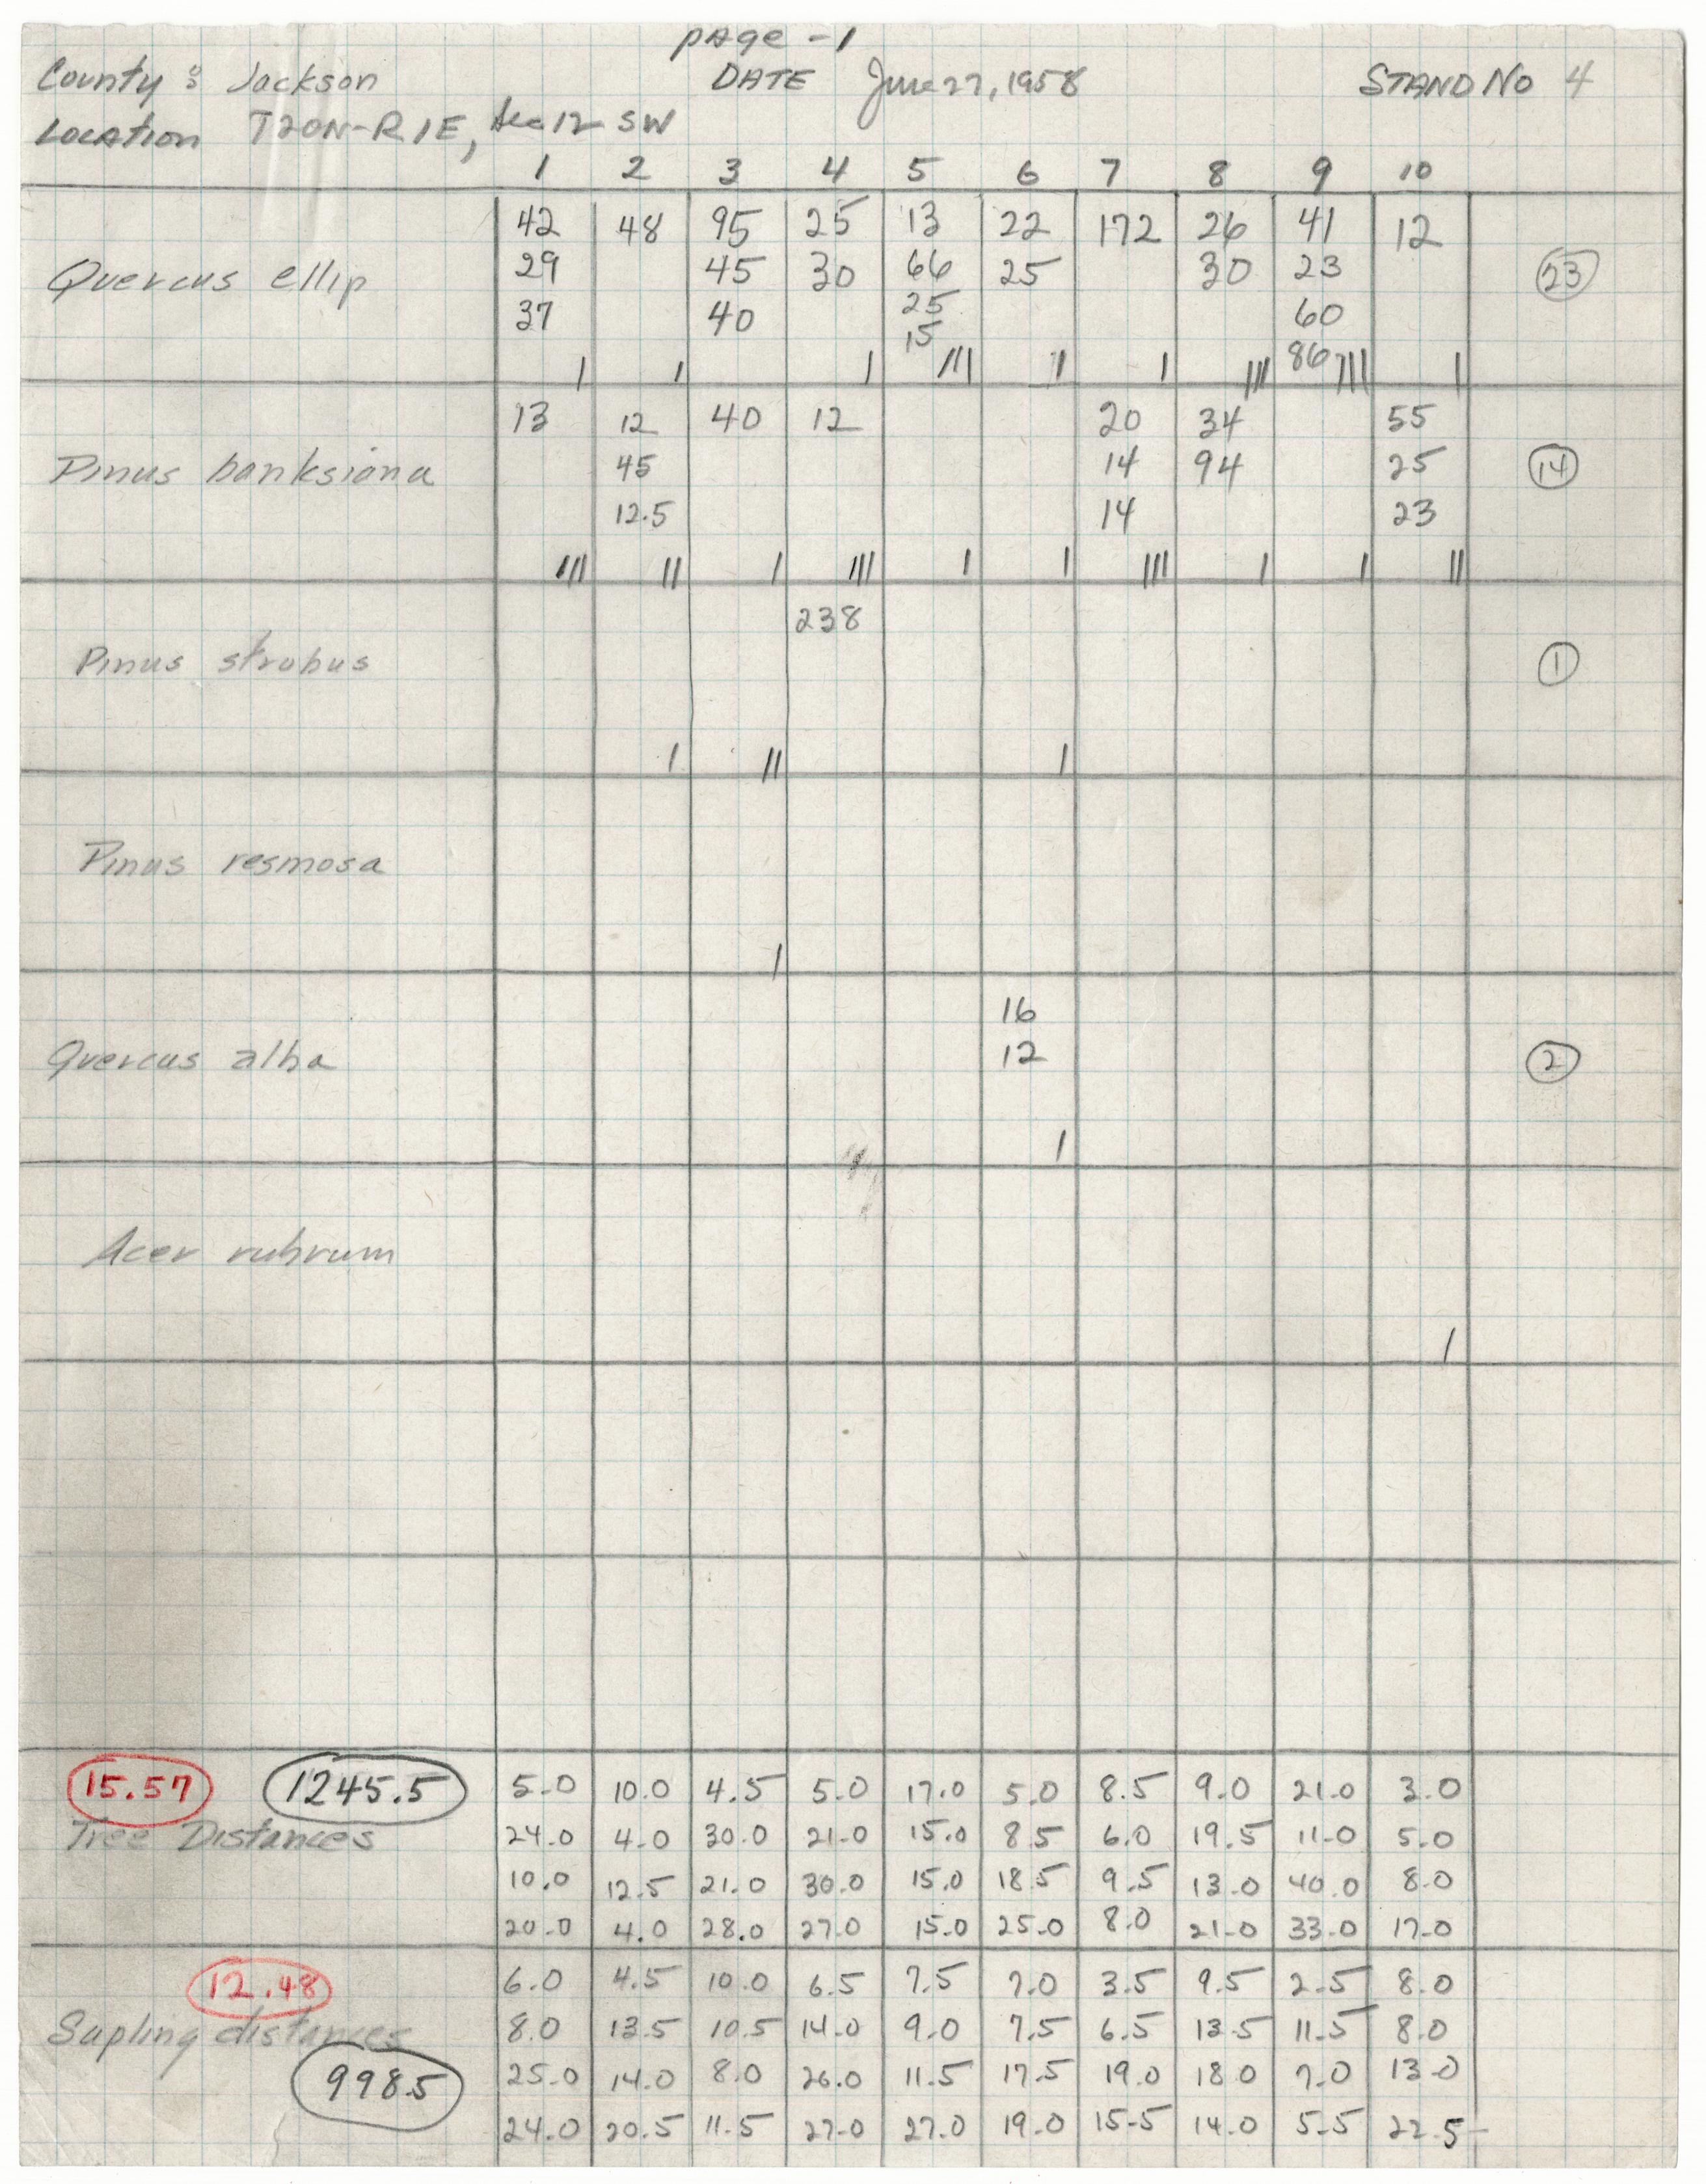 page - 1
County : Jackson DATE June 27, 1958 STAND No 4
Location T20N-R1E, Sec 12 SW
1 2 3 4 5 6 7 8 9 10
42 48 95 25 13 22 172 26 41 12
Quercus ellip 29 45 30 66 25 30 23 (23)
37 40 25 60
15 86
| | | ||| | | ||| ||| |
13 12 40 12 20 34 55
Pinus banksiana 45 14 94 25 (14)
12.5 14 23
||| || | ||| | | ||| | | ||
238
Pinus strobus (1)
| || |
Pinus resinosa
|
16
Quercus alba 12 (2)
|
Acer rubrum
|
15.57 1245.5 5.0 10.0 4.5 5.0 17.0 5.0 8.5 9.0 21.0 3.0
Tree Distances 24.0 4.0 30.0 21.0 15.0 8.5 6.0 19.5 11.0 5.0
10.0 12.5 21.0 30.0 15.0 18.5 9.5 13.0 40.0 8.0
20.0 4.0 28.0 27.0 15.0 25.0 8.0 21.0 33.0 17.0
12.48 6.0 4.5 10.0 6.5 7.5 7.0 3.5 9.5 2.5 8.0
Sapling distances 8.0 13.5 10.5 14.0 9.0 7.5 6.5 13.5 11.5 8.0
998.5 25.0 14.0 8.0 26.0 11.5 17.5 19.0 18.0 7.0 13.0
24.0 20.5 11.5 27.0 27.0 19.0 15.5 14.0 5.5 22.5